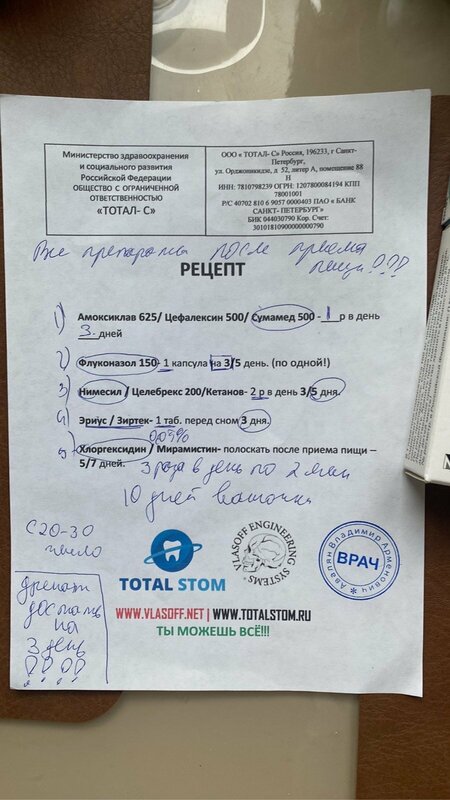 Министерство здравоохранения
и социального развития
Российской Федерации
ОБЩЕСТВО С ОГРАНИЧЕННОЙ
ОТВЕТСТВЕННОСТЬЮ
«ТОТАЛ- С»
ООО « ТОТАЛ- С» Россия, 196233, г Санкт-
Петербург,
ул. Орджоникидзе, д 52, литер А, помещение 88
Н
ИНН: 7810798239 ОГРН: 1207800084194 КПП
78001001
Р/С 40702 810 6 9057 0000403 ПАО « БАНК
САНКТ- ПЕТЕРБУРГ»
БИК 044030790 Кор. Счет:
30101810900000000790
Все препараты после приема
пищи!!!
РЕЦЕПТ
1) Амоксиклав 625/ Цефалексин 500/ Сумамед 500 - 1 р в день
3 дней
2) Флуконазол 150- 1 капсула на 3/5 день. (по одной!)
3) Нимесил / Целебрекс 200/Кетанов- 2 р в день 3/5 дня.
4) Эриус / Зиртек- 1 таб. перед сном 3 дня.
0,05%
5) Хлоргексидин / Мирамистин- полоскать после приема пищи –
5/7 дней. 3 раза в день по 2 мин
10 дней
С 20-30
число
TOTAL STOM
VLASOFF ENGINEERING SYSTEMS
Авалян Владимир Арменович
ВРАЧ
WWW.VLASOFF.NET | WWW.TOTALSTOM.RU
ТЫ МОЖЕШЬ ВСЁ!!!
дренаж
достать
на
3 день
!!!!